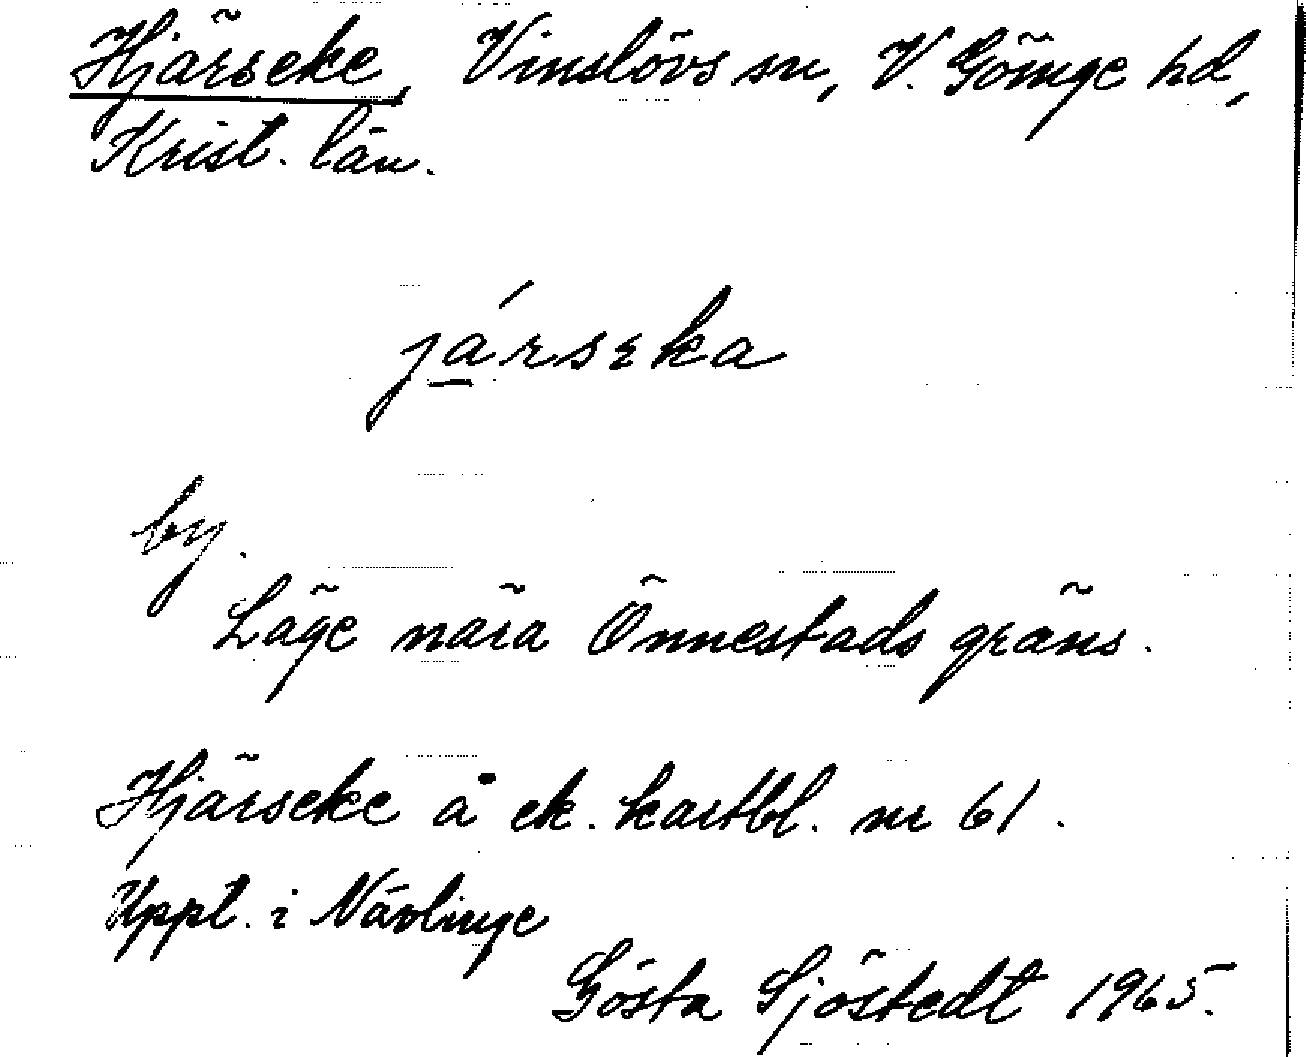 Hjärseke, Vinslövs sn, V. Göinge hd,
Krist. län.
já̱rsɛka
by.
Läge nära Önnestads gräns.
Hjärseke å ek. kartbl. nr 61.
Uppt. i Nävlinge
Gösta Sjöstedt 1965.